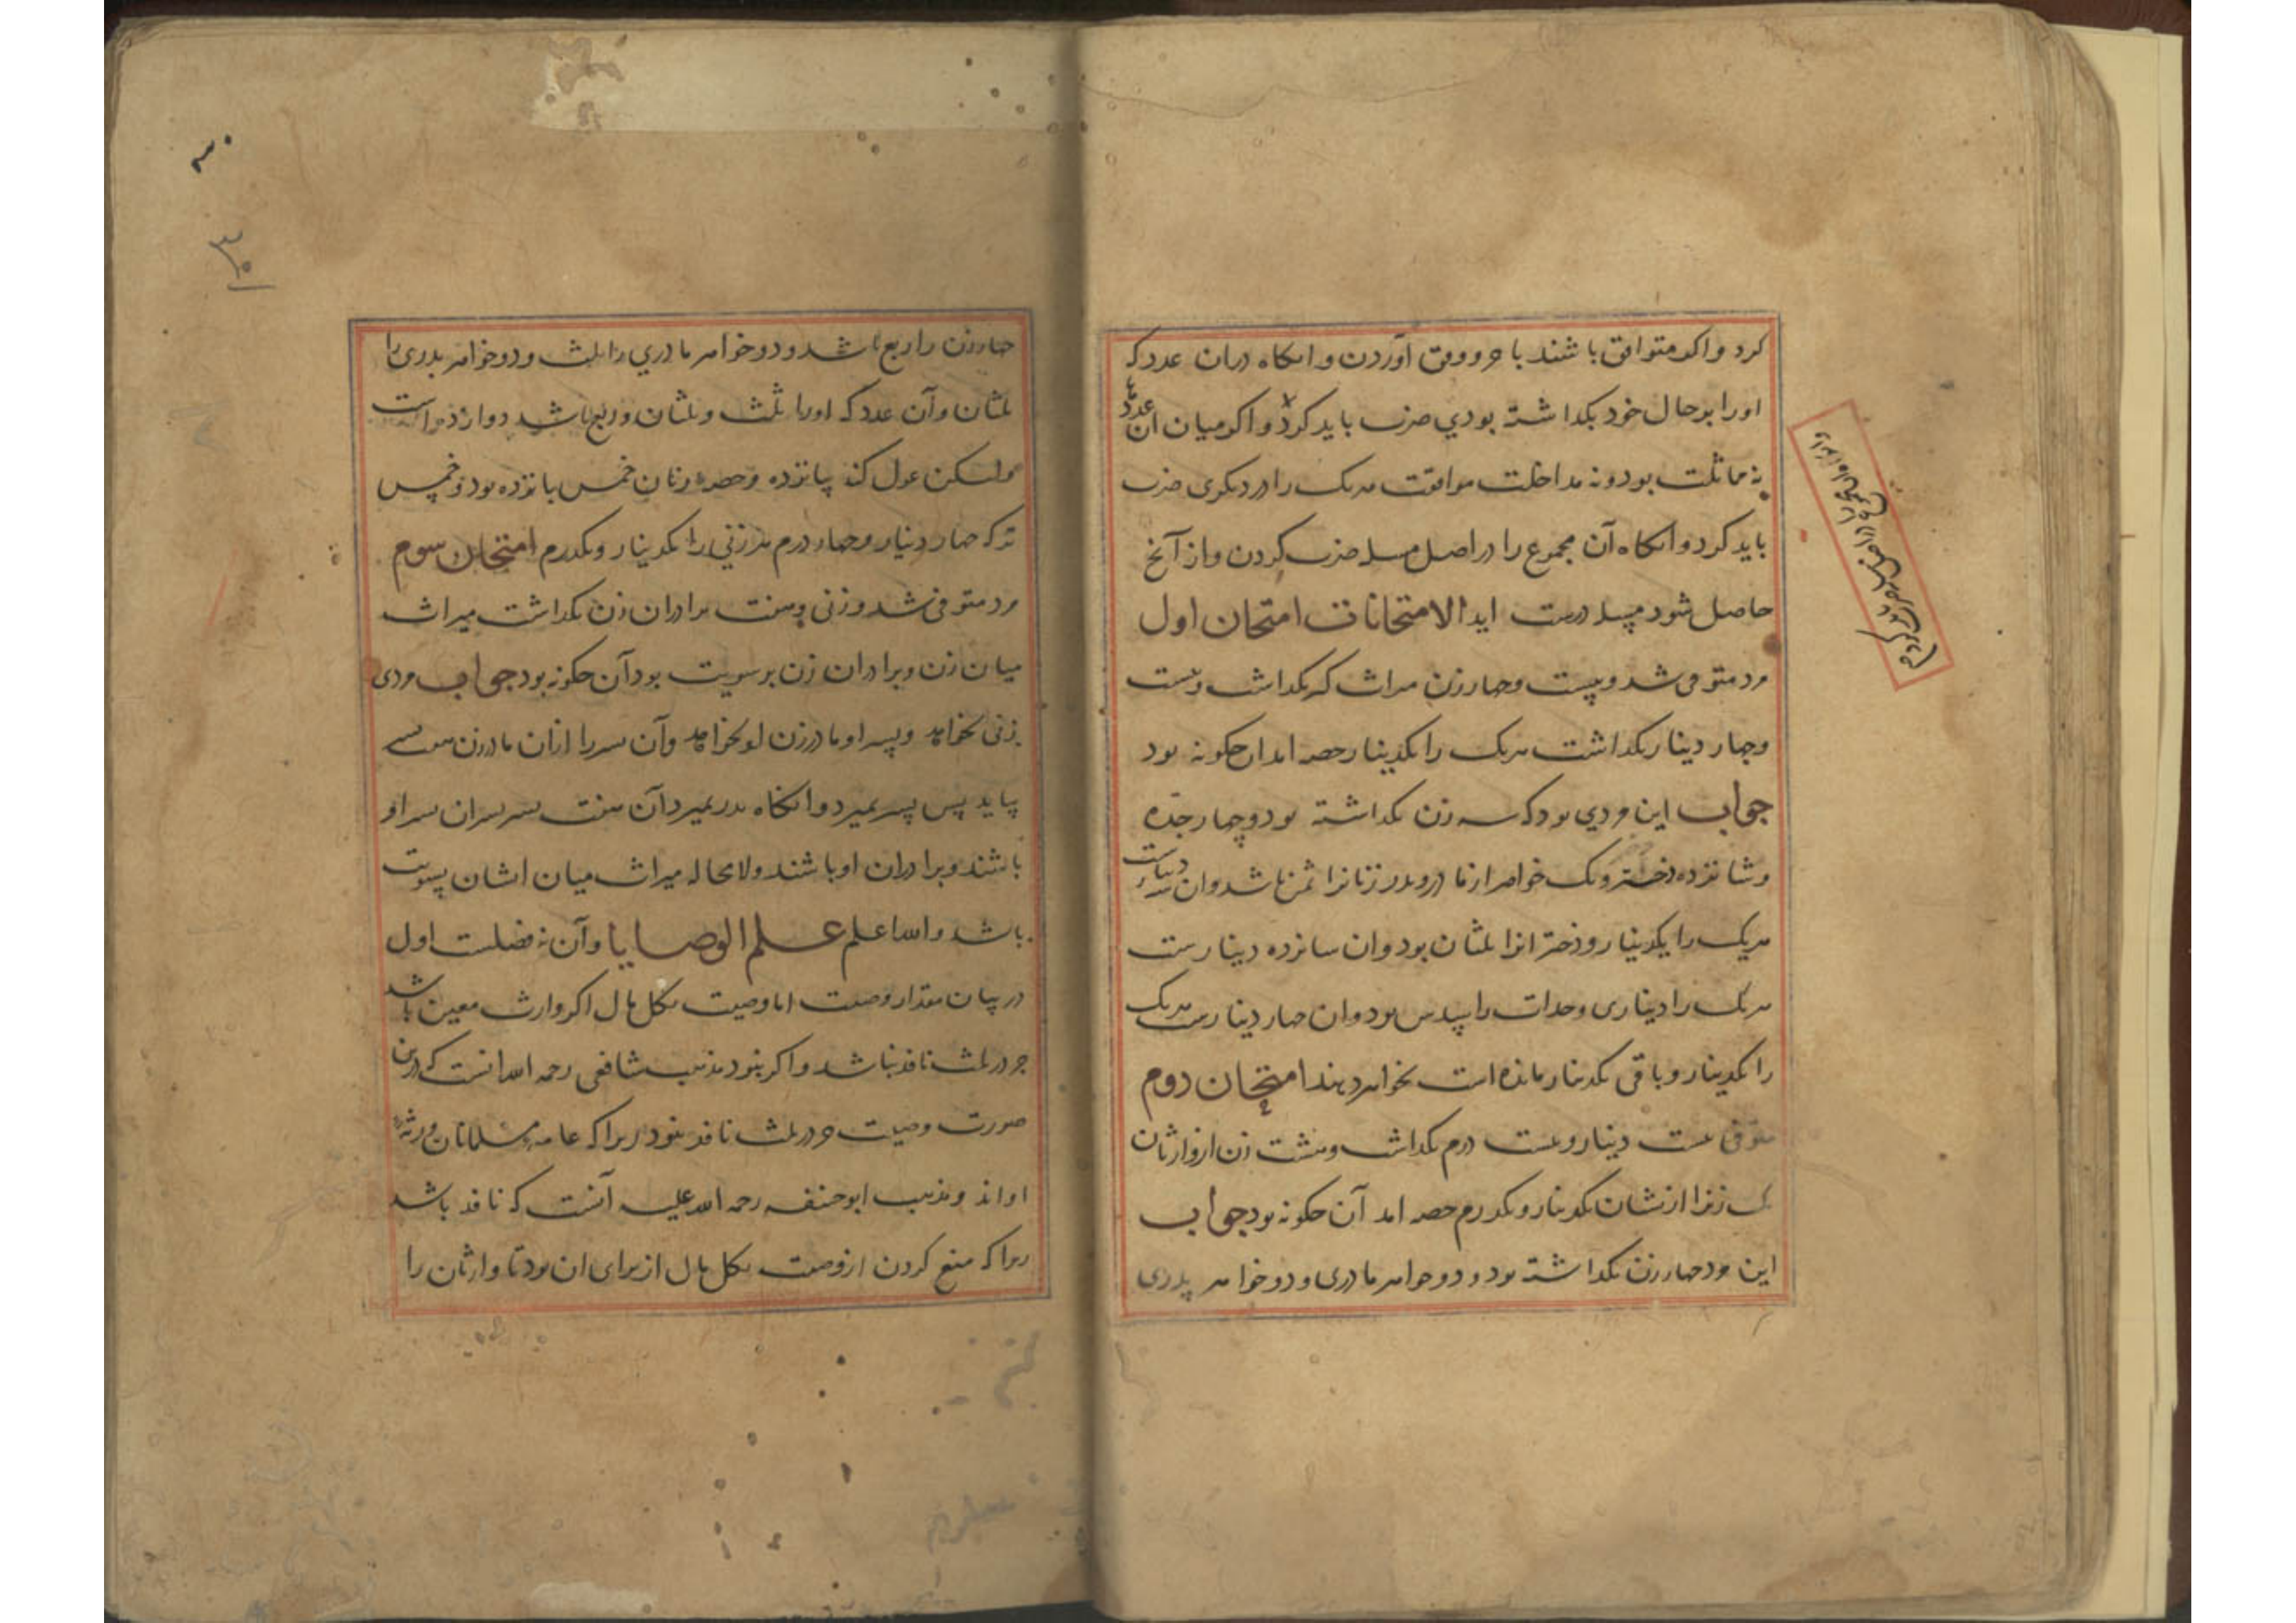 کرد و اکر متوافق باشند با جزو وفق آوردن و انکاه دران عدد که
او را بر حال خود بکداشته بودی ضرب باید کرد و اکر میان ان عدد
نه مماثلت بود و نه مداخلت موافقت هر یک را در دیکری ضرب
باید کرد و انکاه آن مجموع را در اصل مسله ضرب کردن و از آنج
حاصل شود مسله درست اید الامتحانات امتحان اول
مرد متوفی شد و بیست و چهار زن میراث کر بکداشت و بیست
و چهار دینار بکداشت هر یک را یکدینار حصه امد ان چکونه بود
جواب این مردی بود که سه زن بکداشته بود و چهار جده
و شانزده دختر و یک خواهر از مادر و پدر زنانرا ثمن باشد و ان سه دینارست
هر یک را یکدینار و دخترانرا ثلثان بود و ان شانزده دینارست
هر یک را دیناری و جدات را سدس بود و ان چهار دینارست هر یک
را یکدینار و باقی یکدینار مانده است بخواهر دهند امتحان دوم
متوفی بیست دینار و بیست درم بکداشت و هشت زن از وارثان
یک زنرا ازیشان یکدینار و یکدرم حصه امد آن چکونه بود جواب
این مرد چهار زن بکداشته بود و دو خواهر مادری و دو خواهر پدری
چهار زن را ربع باشد و دو خواهر مادری را ثلث و دو خواهر پدری را
ثلثان و آن عدد که او را ثلث و ثلثان و ربع باشد دوازده است
ولیکن عول کند پانزده و حصه زنان خمس پانزده بود و خمس
ترکه چهار دینار و چهار درم هر زنی را یکدینار و یکدرم امتحان سوم
مرد متوفی شد و زنی و هفت برادران زن بکداشت میراث
میان زن و برادران زن بر سویت بود آن چکونه بود جواب مردی
زنی بخواهد و پسر او مادر زن او بخواهد و آن پسر را ازان مادر زن هفت پسر
بیاید پس پسر بمیرد و انکاه پدر بمیرد آن هفت پسر پسران پسر او
باشند و برادران او باشند و لا محاله میراث میان ایشان بسویت
باشد و الله اعلم علم الوصایا و آن نه فضلت اول
در بیان مقدار وصیت اما وصیت بکل مال اکر وارث معین باشد
جز در ثلث نافذ نباشد و اکر نبود مذهب شافعی رحمه الله انست که درین
صورت وصیت جز در ثلث نافذ نبود زیرا که عامه مسلمانان ورثه
او اند و مذهب ابو حنیفه رحمه الله علیه آنست که نافذ باشد
زیرا که منع کردن از وصیت بکل مال از برای ان بود تا وارثان را